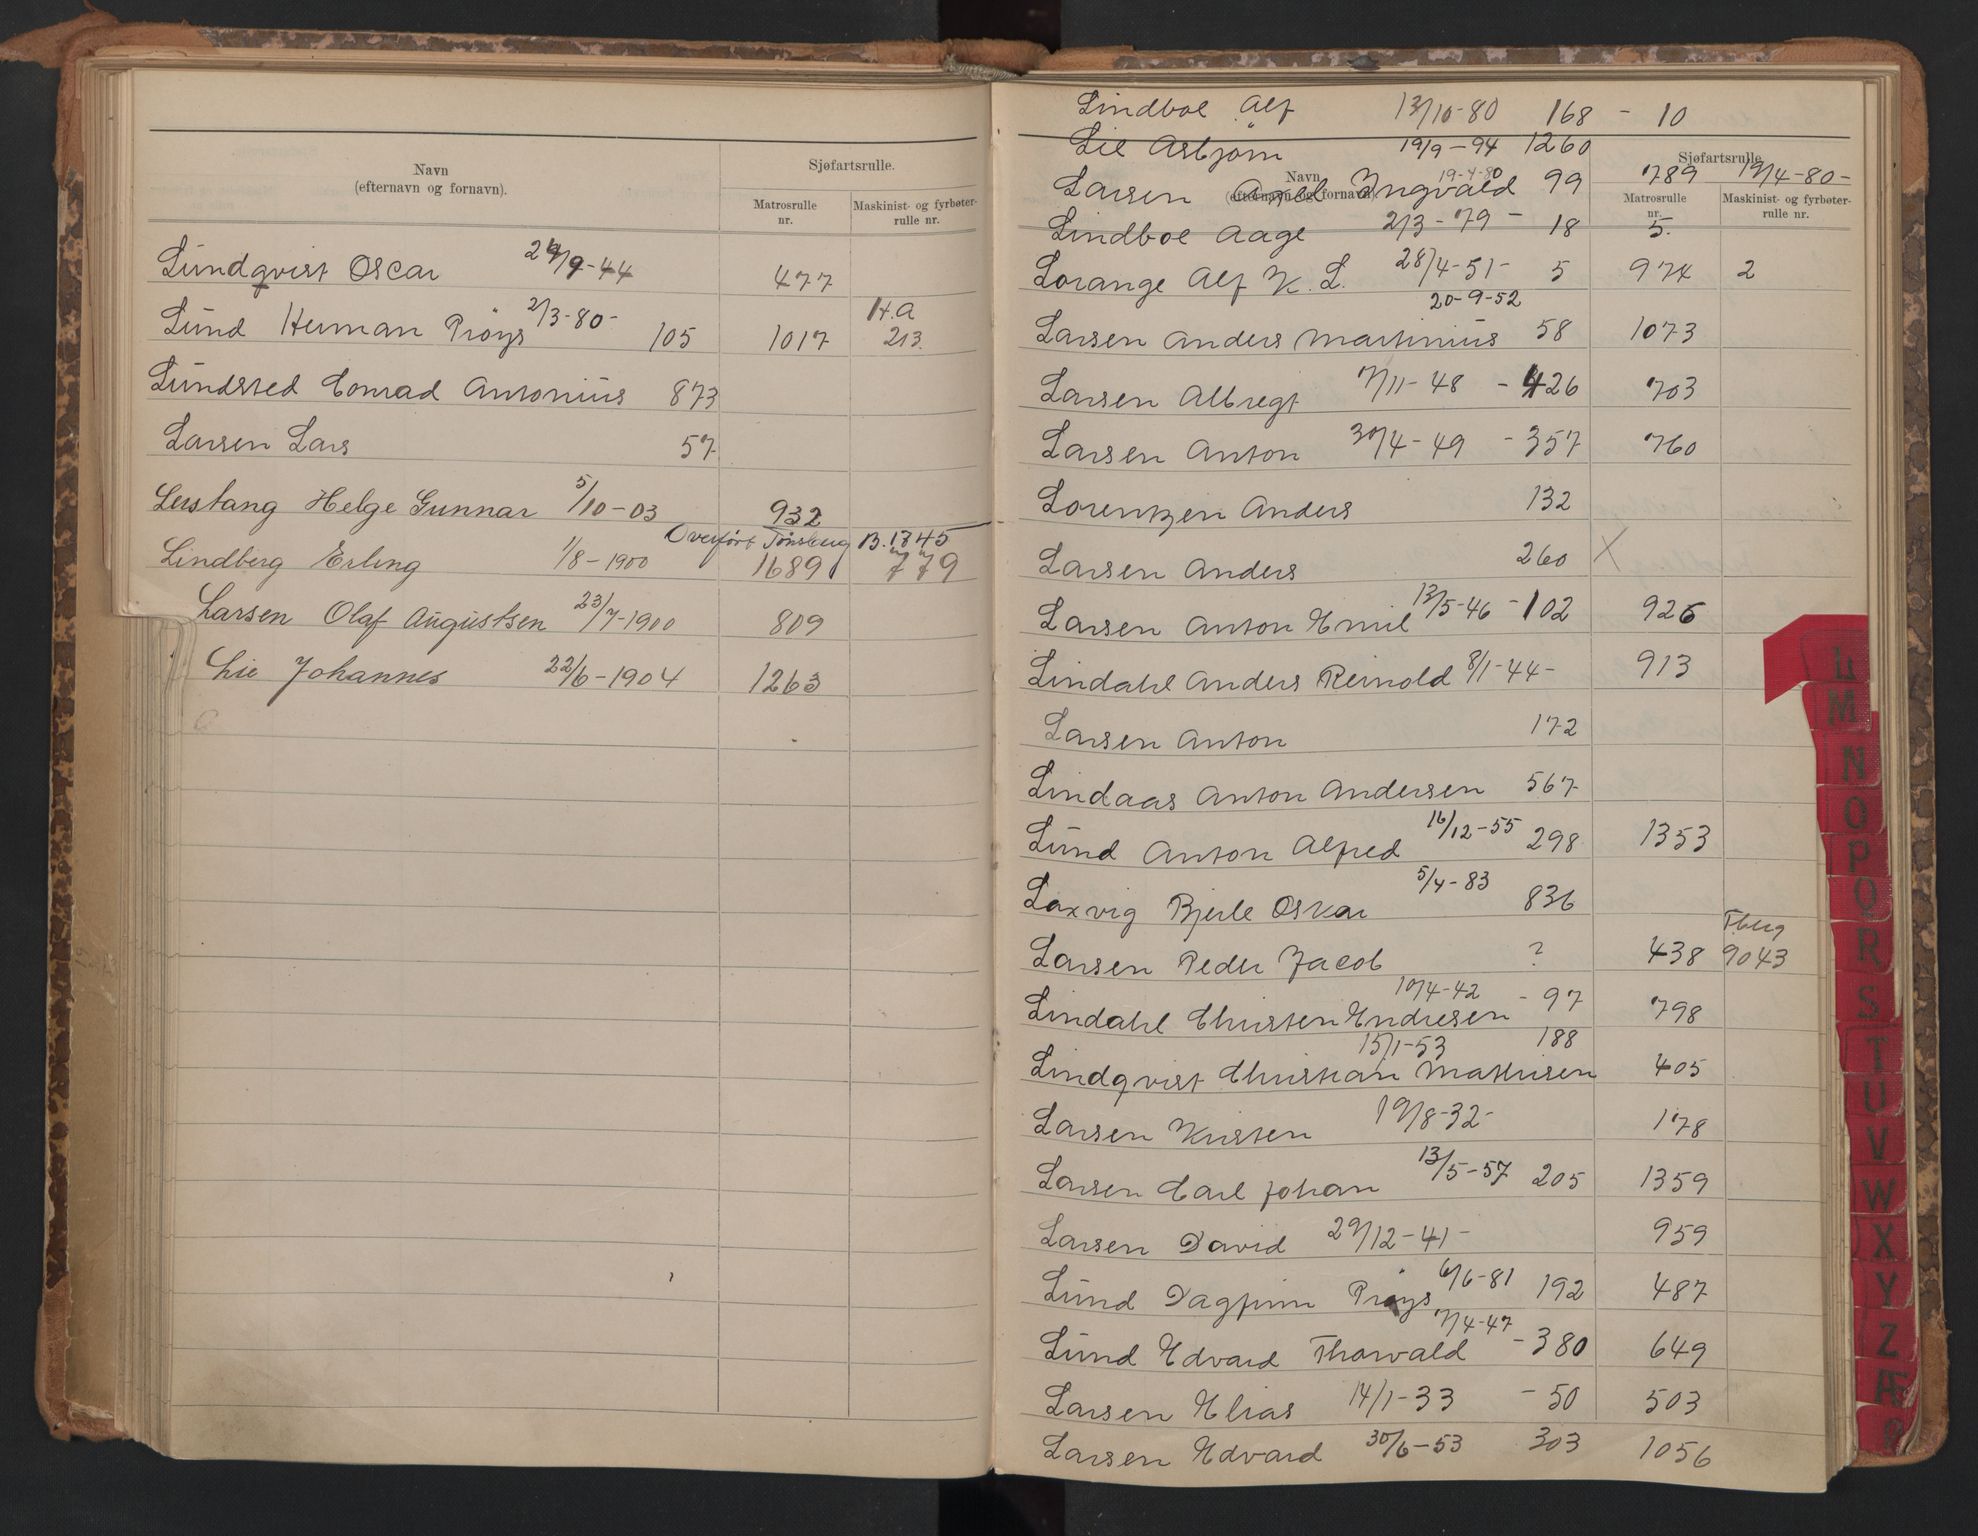 Navn
(efternavn og fornavn).
Sjøfartsrulle.
Matrosrulle
nr.
Maskinist- og fyrbøter-
rulle nr.
Lundqvist Oscar 29/9-44 477
Lund Herman Prøys 2/3-80- 105 1017 H.A 213.
Lundsted Conrad Antonius 873
Larsen Lars 57
Lerstang Helge Gunnar 5/10-03 932
Overført Tønsberg B. 1345
Lindberg Erling 1/8-1900 1689 779
Larsen Olaf Augustsen 23/7-1900 809
Lie Johannes 22/6-1904 1263
Lindboe Alf 13/10-80 168 - 10
Lie Asbjørn 19/9-94 1260
Navn
(efternavn og fornavn).
Sjøfartsrulle.
Matrosrulle
nr.
Maskinist- og fyrbøter-
rulle nr.
Larsen Axel Yngvald 19-4-80 99 789 19/4-80-
Lindboe Aage 2/3-79- 18 5.
Lorange Alf K. L. 28/4-51- 5 974 2
Larsen Anders Martinius 20-9-52 58 1073
Larsen Albregt 7/11-48 - 426 703
Larsen Anton 30/4-49 - 357 760
Lorentzen Anders 132
Larsen Anders 260 X
Larsen Anton Emil 13/5-46 - 102 926
Lindahl Anders Reinold 8/1-44- 913
Larsen Anton 172
Lindaas Anton Andersen 567
Lund Anton Alfred 16/12-55 298 1353
Laxvig Bjerle Oskar 5/4-83 836
Larsen Peder Jacob ? 438 Tberg 9043
Lindahl Christen Endresen 10/4-42 - 97 798
Lindqvist Christian Mathisen 15/1-53 188 405
Larsen Kristen 19/8-32- 178
Larsen Carl Johan 13/5-57 205 1359
Larsen David 29/12-41- 959
Lund Dagfinn Prøys 6/6-81 192 487
Lund Edvard Thorvald 7/4-47 - 380 649
Larsen Elias 14/1-33 - 50 503
Larsen Edvard 30/6-53 303 1056
L
M
N
O
P
Q
R
S
T
U
V
W
X
Y
Z
Æ
Ø